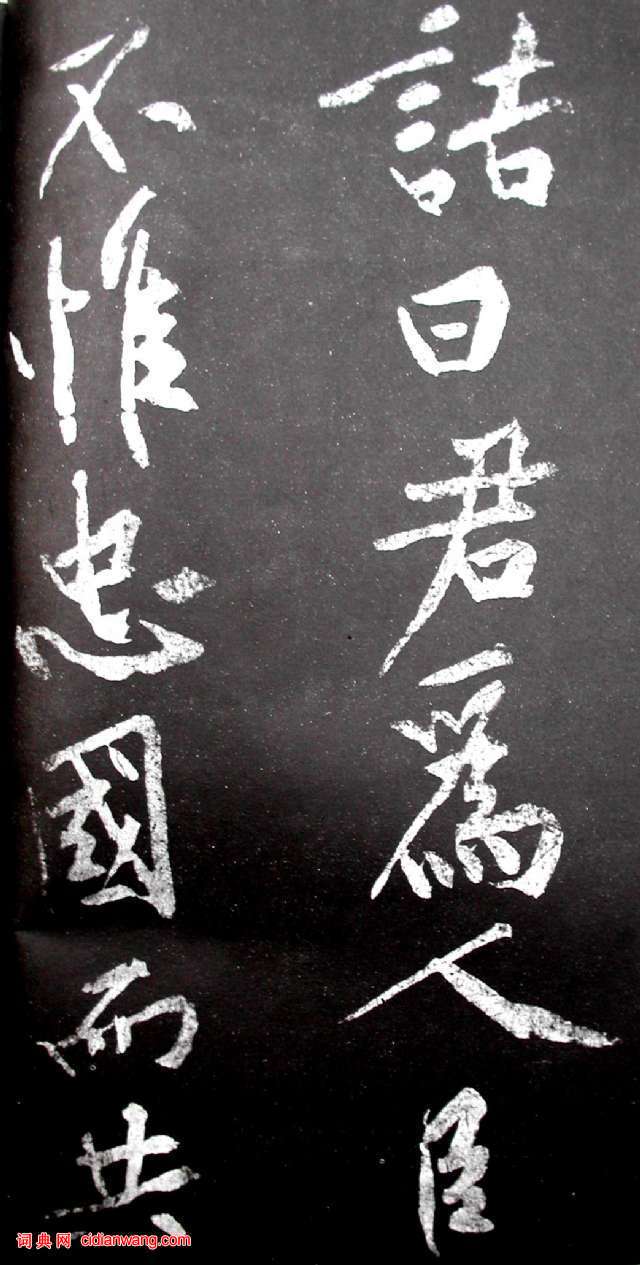 諸曰君為人臣
不惟忠國而共
词典网 cidianwang.com